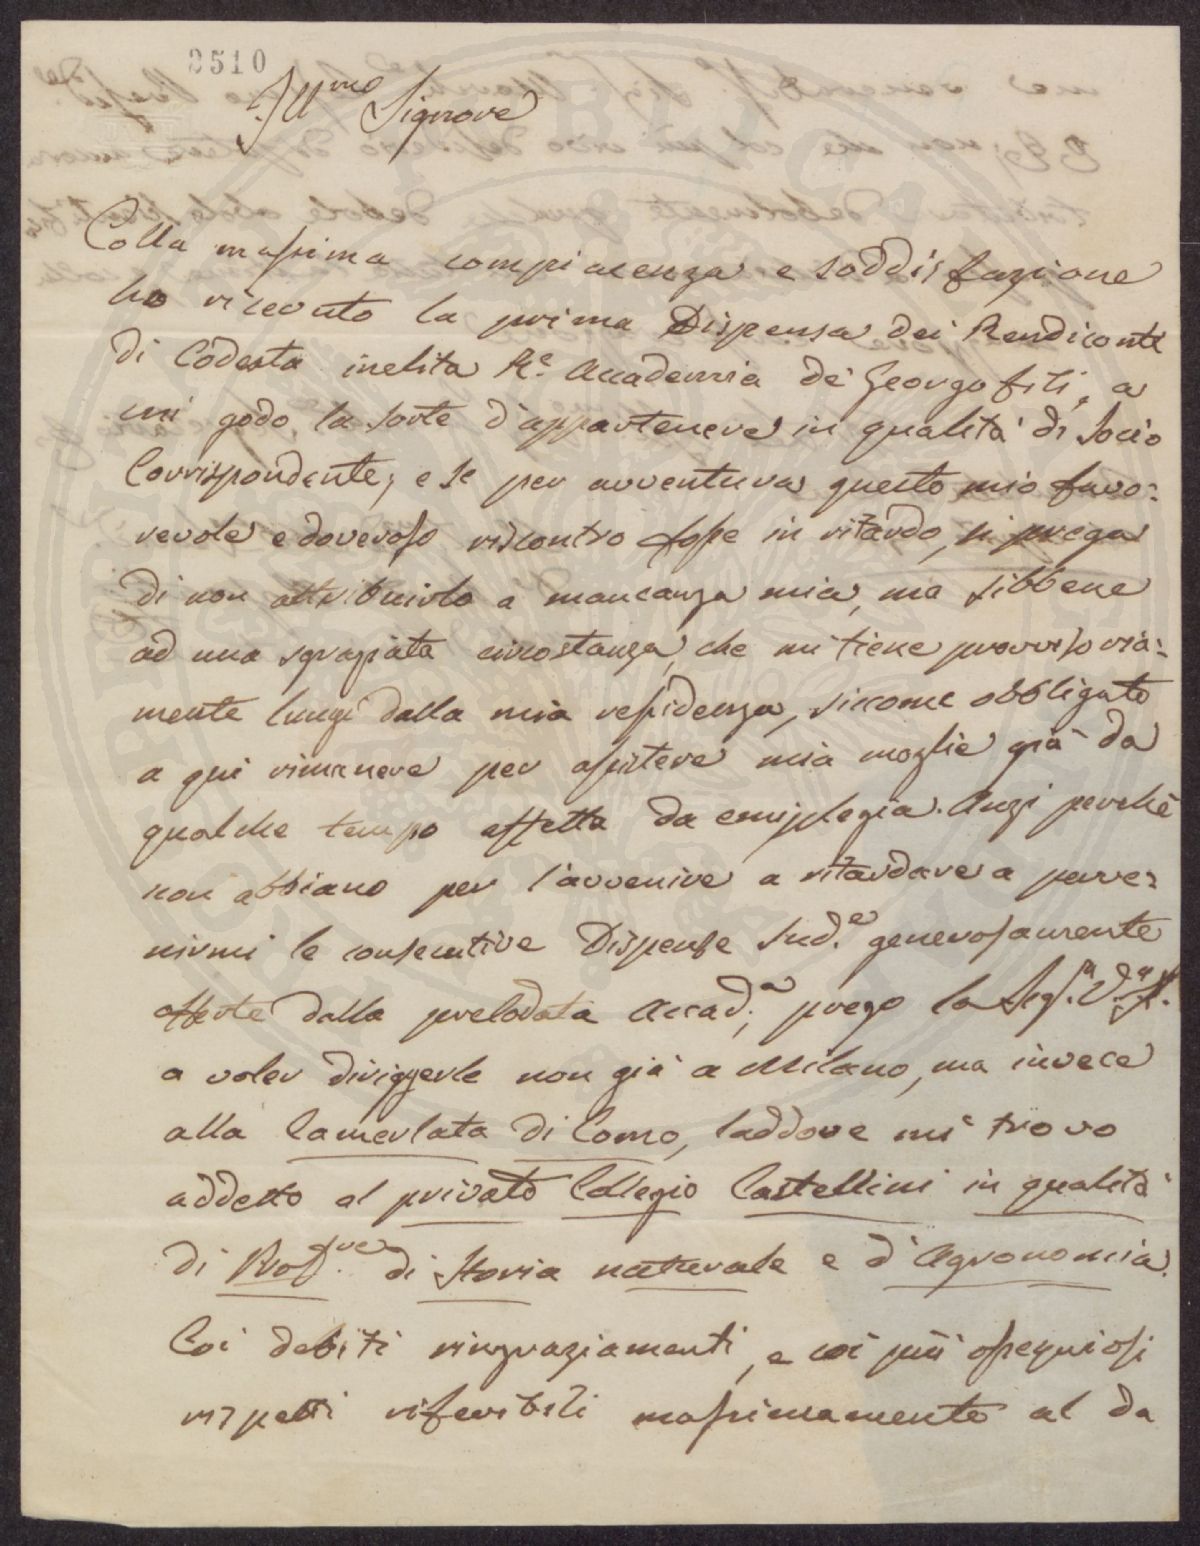 2510
Ill.mo Signore
Colla massima compiacenza e soddisfazione
ho ricevuto la prima Dispensa dei Rendiconti
di Codesta inclita R.e Accademia de' Georgofili, a
cui godo la sorte d'appartenere in qualità di Socio
Corrispondente; e se per avventura questo mio favo=
revole e doveroso riscontro fosse in ritardo, si prega
di non attribuirlo a mancanza mia, ma sibbene
ad una sgraziata circostanza, che mi tiene provvisoria=
mente lungi dalla mia residenza, siccome obbligato
a qui rimanere per assistere mia moglie già da
qualche tempo affetta da emiplegia. Anzi perchè
non abbiano per l'avvenire a ritardare a perve=
nirmi le consecutive Dispense Sud.e generosamente
offerte dalla prelodata Accad.a, prego la Sig.a V.a
a voler dirigerle non già a Milano, ma invece
alla Camerlata di Como, laddove mi trovo
addetto al privato Collegio Castellini in qualità
di Prof.re di Storia naturale e d'Agronomia.
Coi debiti ringraziamenti, e coi più ossequiosi
rispetti riferibili massimamente al da